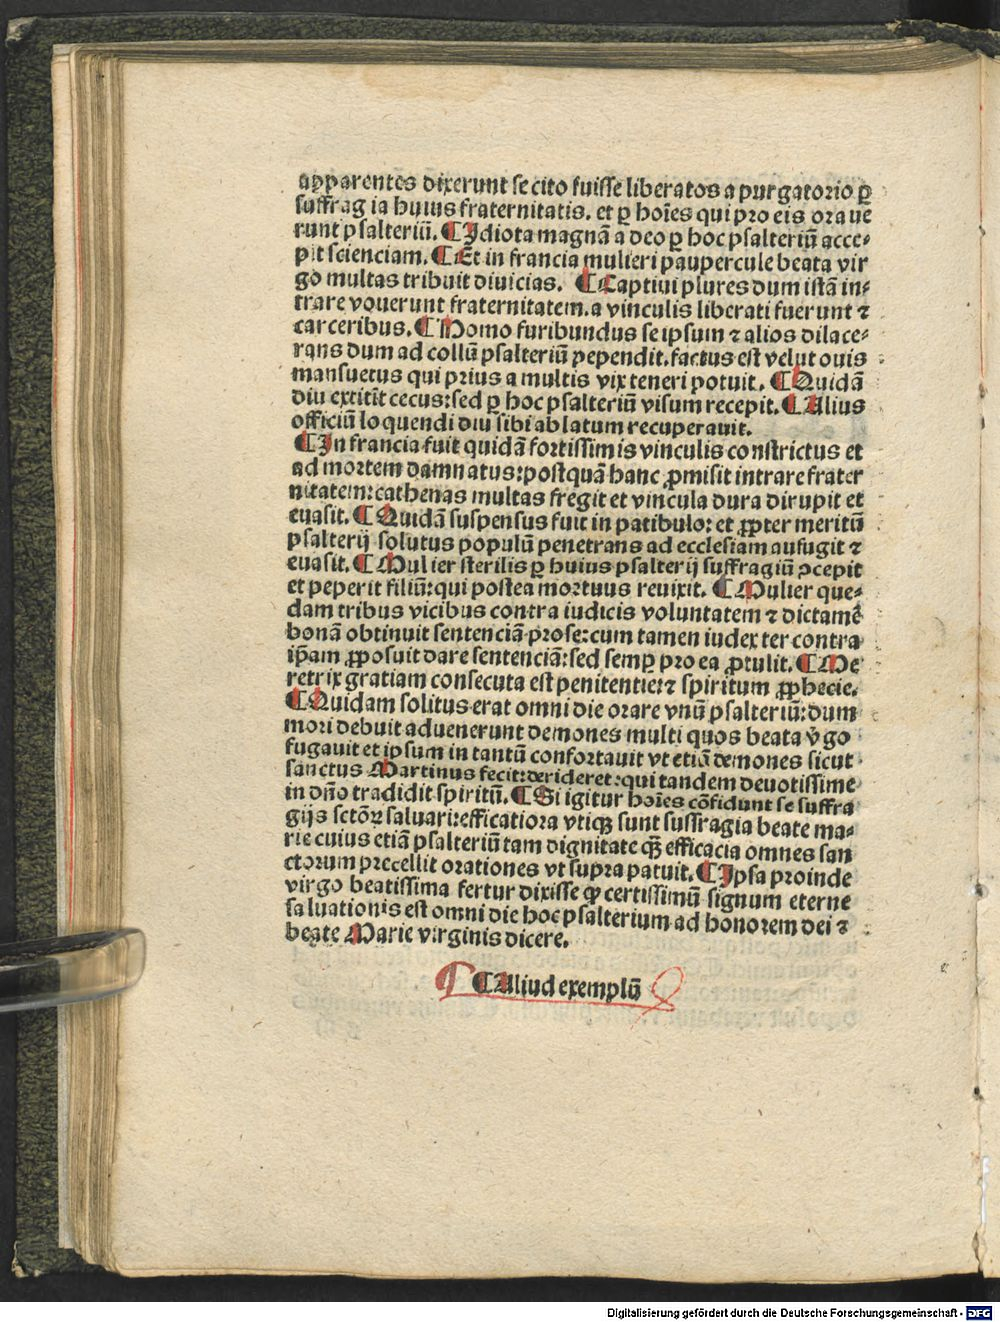 apparentes dixerunt se cito fuisse liberatos a purgatorio ꝑ
suffragia huius fraternitatis. et ꝑ hoīes qui pro eis oraue
runt psalteriū. ¶ Idiota magnā a deo ꝑ hoc psalteriū acce⸗
pit scienciam. ¶ Et in francia mulieri paupercule beata vir
go multas tribuit diuicias. ¶ Captiui plures dum istā in⸗
trare vouerunt fraternitatem. a vinculis liberati fuerunt ⁊
carceribus. ¶ Homo furibundus seipsum ⁊ alios dilace⸗
rans dum ad collū psalteriū pependit. factus est velut ouis
mansuetus qui prius a multis vix teneri potuit. ¶ Quidā
diu extitit cecus: sed ꝑ hoc psalteriū visum recepit. ¶ Alius
officiū loquendi diu sibi ablatum recuperauit.
¶ In francia fuit quidā fortissimis vinculis constrictus et
ad mortem damnatus: postquā hanc ꝓmisit intrare frater
nitatem: cathenas multas fregit et vincula dura dirupit et
euasit. ¶ Quidā suspensus fuit in patibulo: et ꝓpter meritū
psalterij solutus populū penetrans ad ecclesiam aufugit ⁊
euasit. ¶ Mulier sterilis ꝑ huius psalterij suffragiū ꝯcepit
et peperit filiū: qui postea mortuus reuixit. ¶ Mulier que⸗
dam tribus vicibus contra iudicis voluntatem ⁊ dictamē
bonā obtinuit sentenciā pro se: cum tamen iudex ter contra
ip̄am ꝓposuit dare sentenciā: sed semꝑ pro ea ꝓtulit. ¶ Me
retrix gratiam consecuta est penitentie: ⁊ spiritum ꝓphecie.
¶ Quidam solitus erat omni die orare vnū psalteriū: dum
mori debuit aduenerunt demones multi quos beata v̄go
fugauit et ipsum in tantū confortauit vt etiā demones sicut
sanctus Martinus fecit: derideret: qui tandem deuotissime
in dn̄o tradidit spiritū. ¶ Si igitur hoīes cōfidunt se suffra
gijs sctōꝝ saluari: efficatiora vtiqꝫ sunt suffragia beate ma⸗
rie cuius etiā psalteriū tam dignitate qꝫ̄ efficacia omnes san
ctorum precellit orationes vt supra patuit. ¶ Ipsa proinde
virgo beatissima fertur dixisse ꝙ certissimū signum eterne
saluationis est omni die hoc psalterium ad honorem dei ⁊
beate Marie virginis dicere.
¶ Aliud exemplū
Digitalisierung gefördert durch die Deutsche Forschungsgemeinschaft - DFG